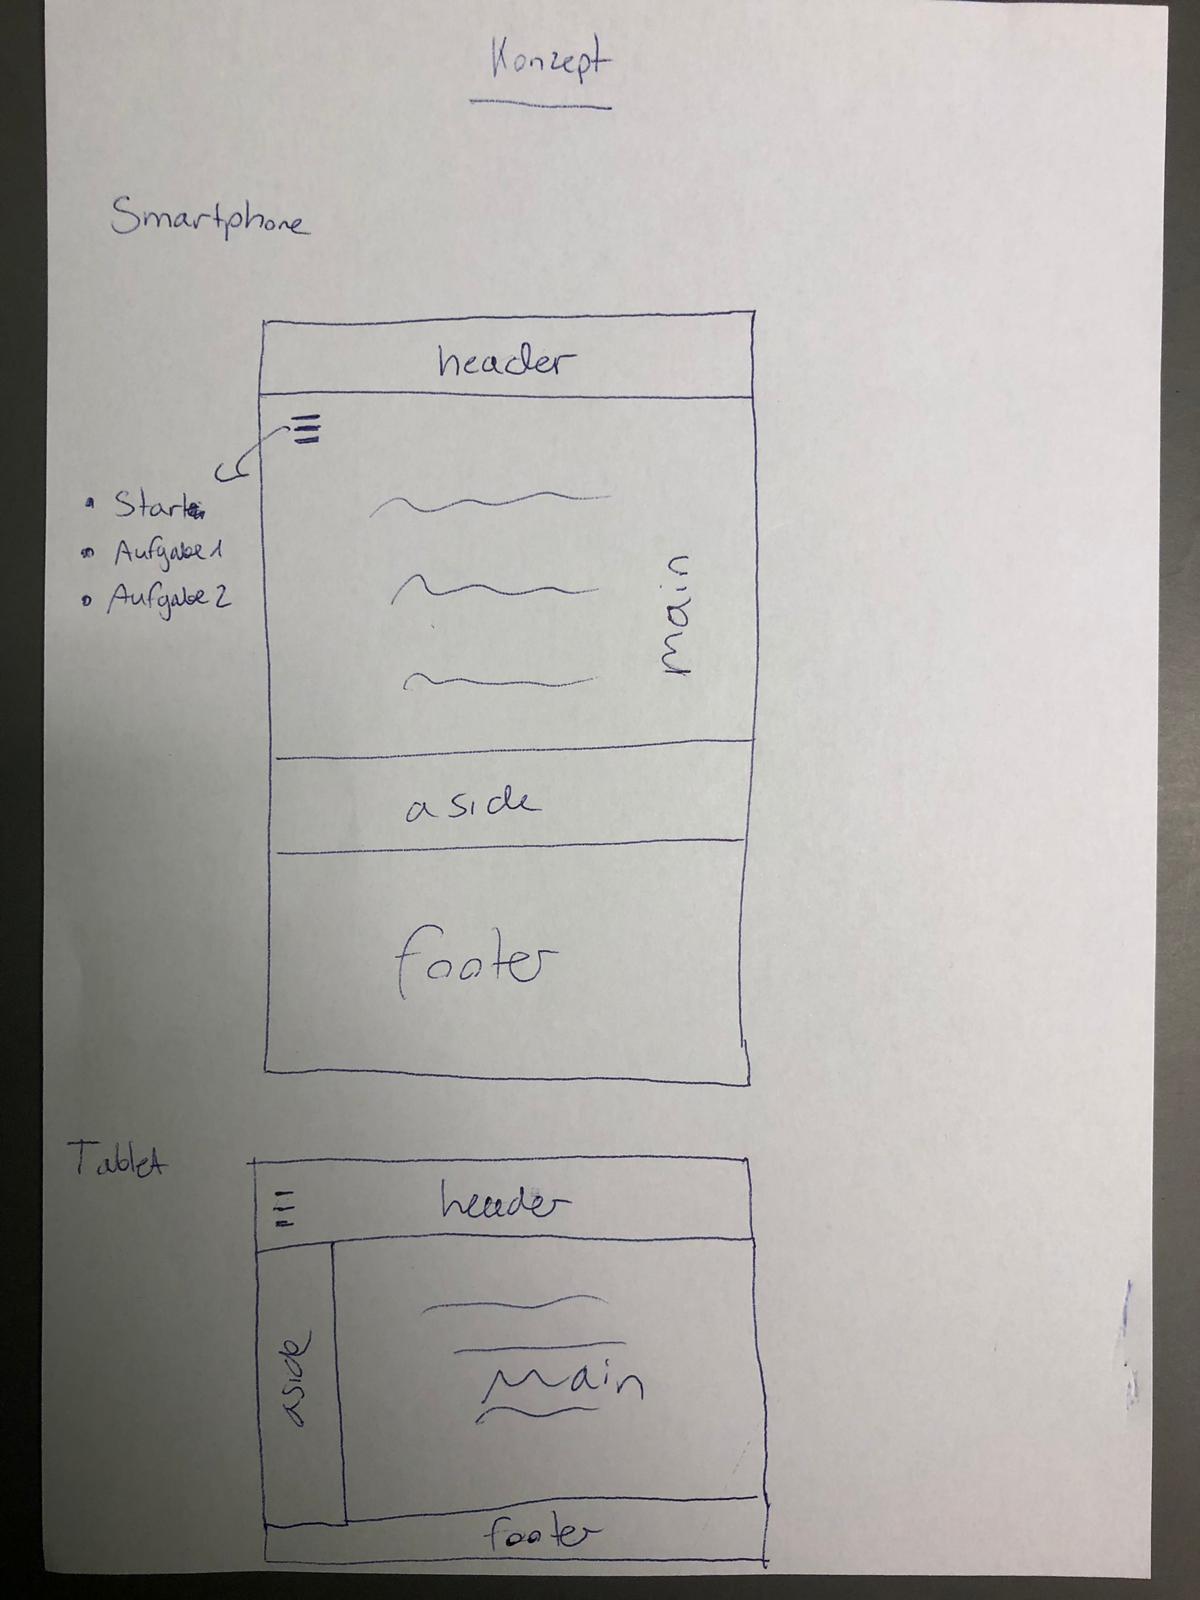 Konzept
Smartphone
header
• Start
• Aufgabe 1
• Aufgabe 2
main
aside
footer
Tablet
header
aside
Main
footer